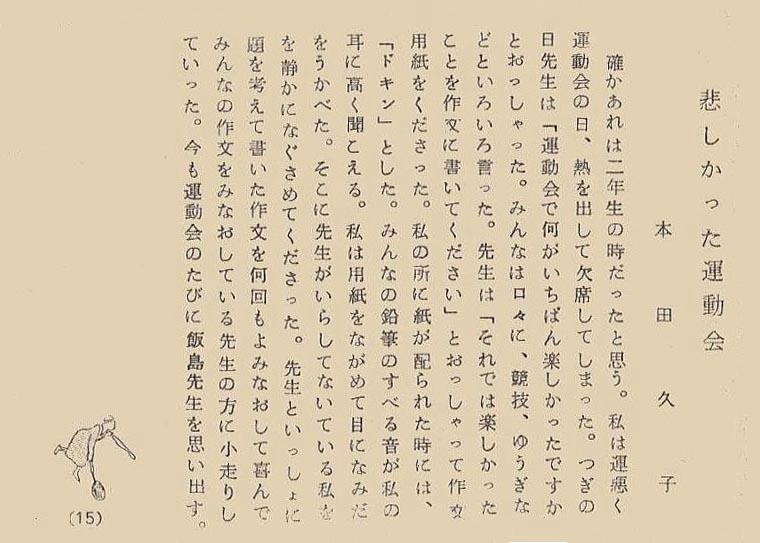 悲しかった運動会
本田久子
確かあれは二年生の時だったと思う。私は運悪く
運動会の日、熱を出して欠席してしまった。つぎの
日先生は「運動会で何がいちばん楽しかったですか
とおっしゃった。みんなは口々に、競技、ゆうぎな
どといろいろ言った。先生は「それでは楽しかった
ことを作文に書いてください」とおっしゃって作文
用紙をくださった。私の所に紙が配られた時には、
「ドキン」とした。みんなの鉛筆のすべる音が私の
耳に高く聞こえる。私は用紙をながめて目になみだ
をうかべた。そこに先生がいらしてないている私を
を静かになぐさめてくださった。先生といっしょに
題を考えて書いた作文を何回もよみなおして喜んで
みんなの作文をみなおしている先生の方に小走りし
ていった。今も運動会のたびに飯島先生を思い出す。
(15)